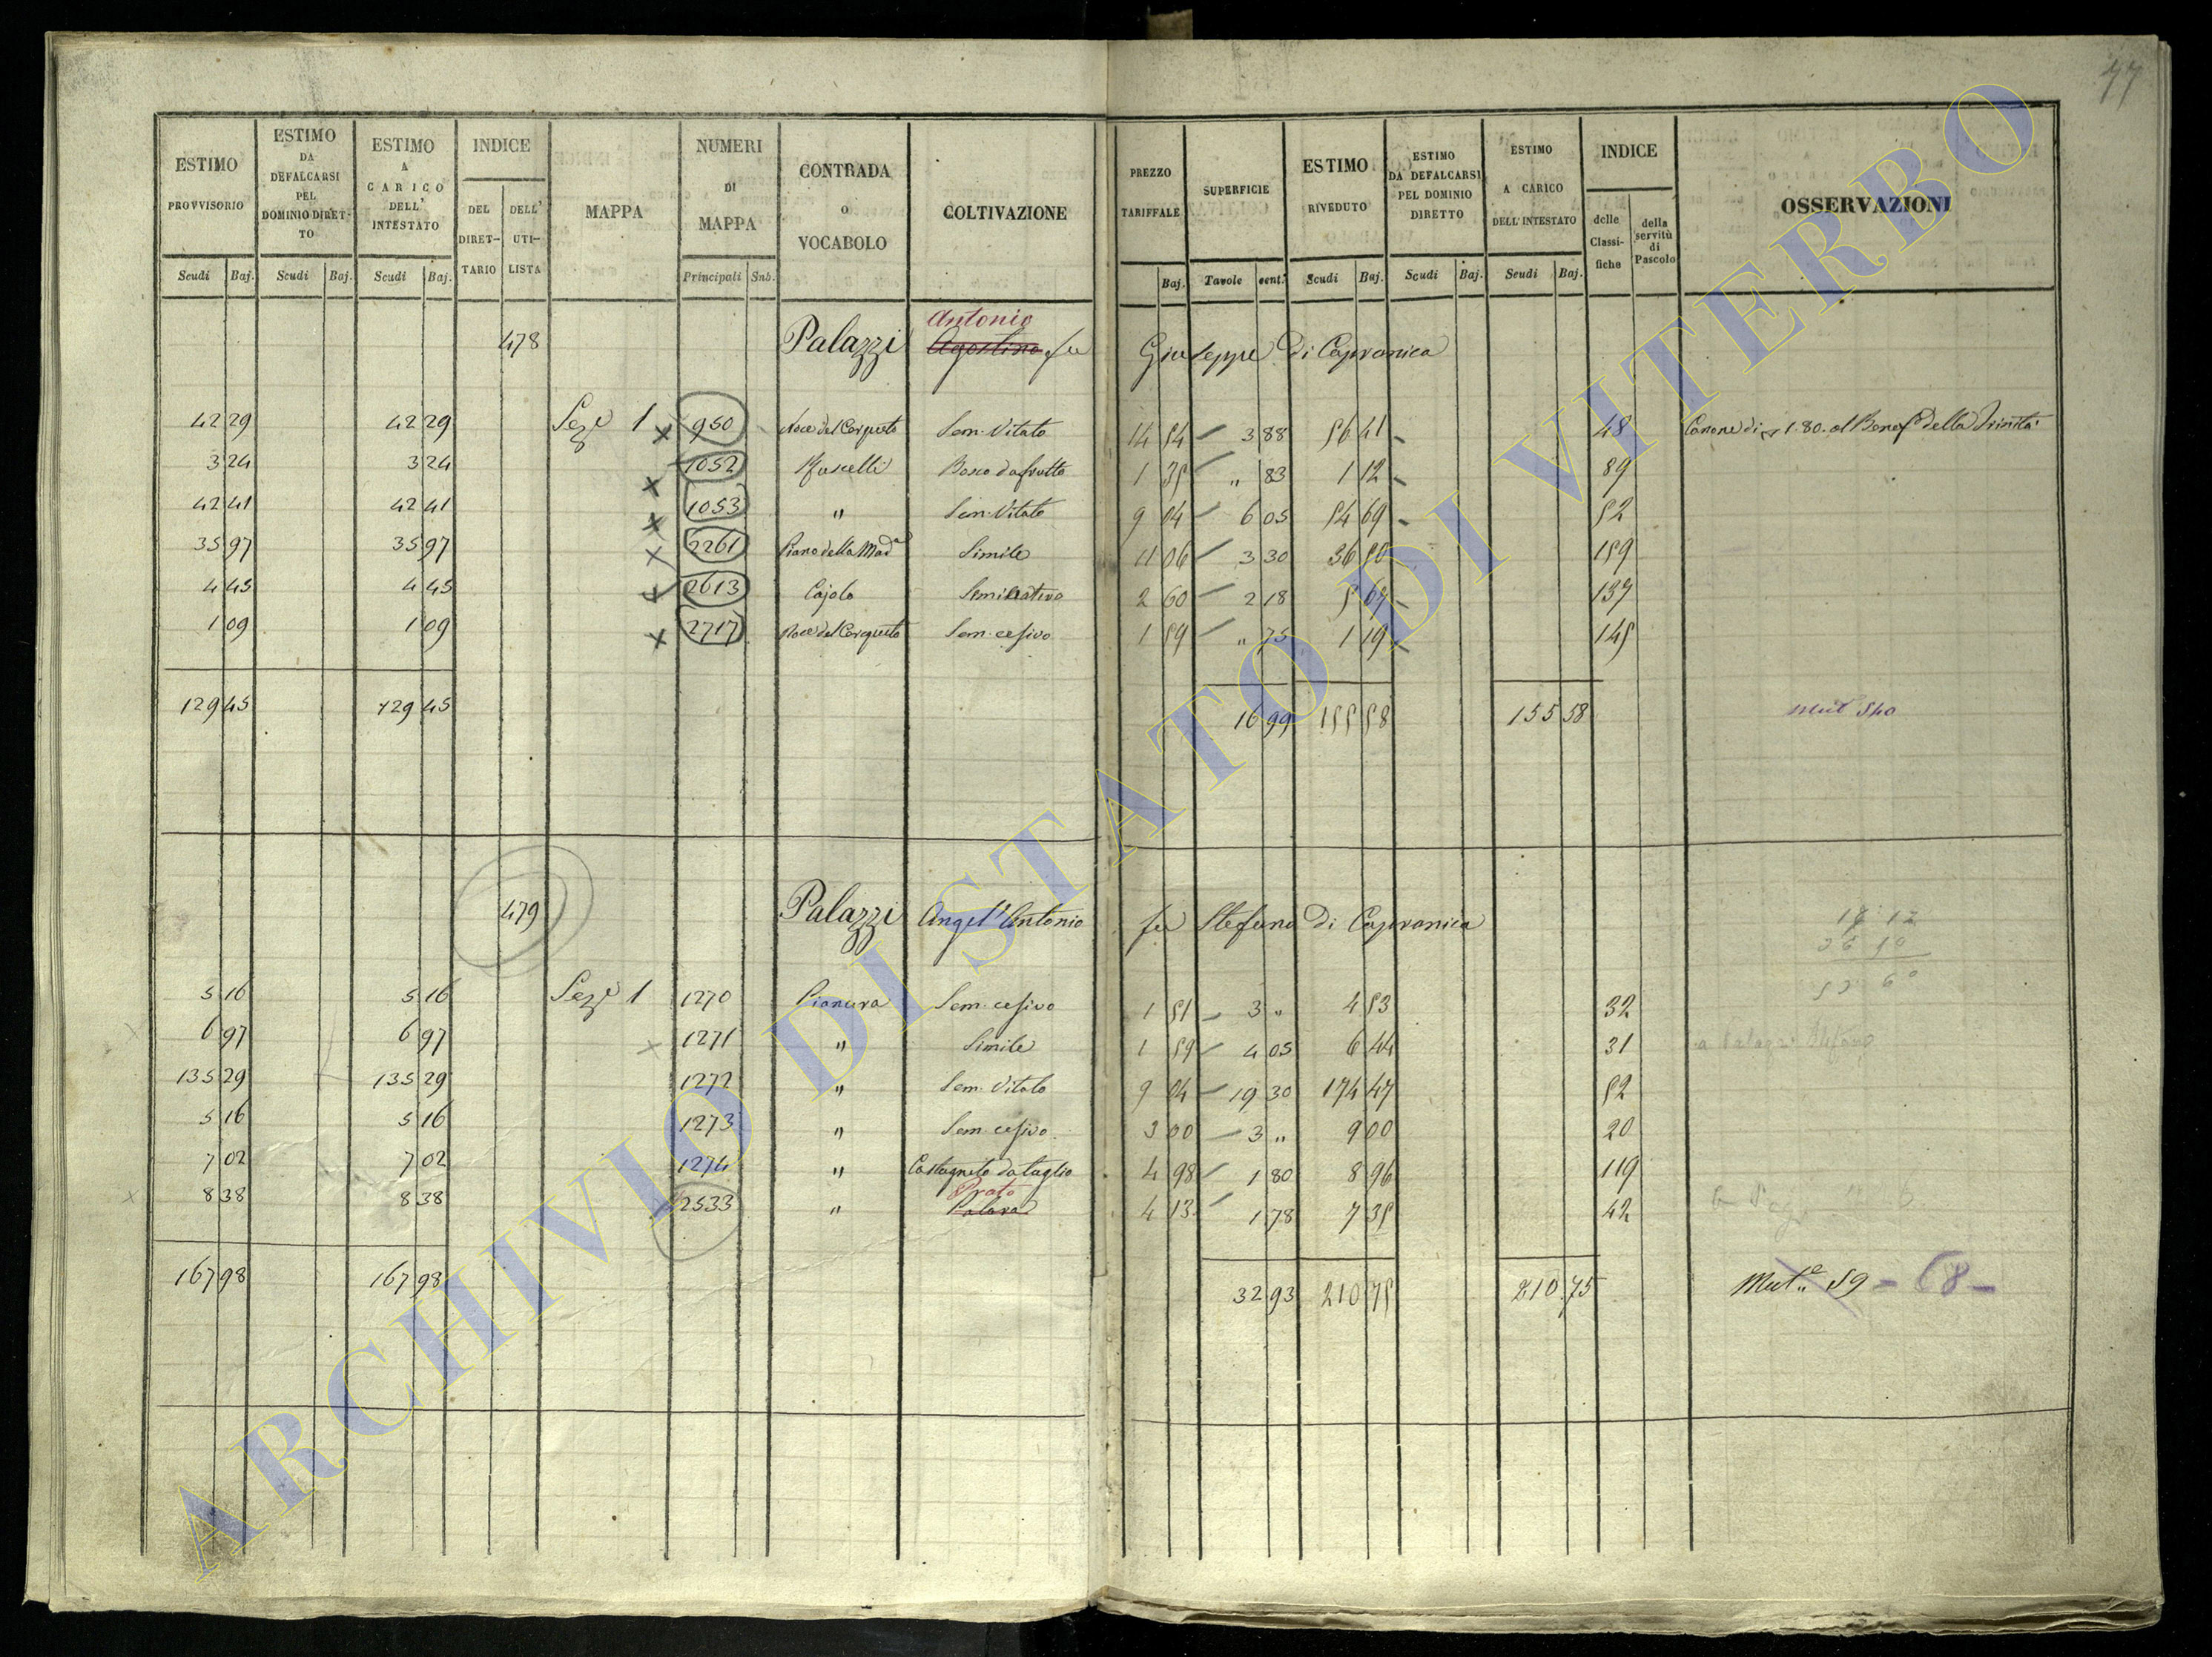 77
ESTIMO PROVVISORIO Scudi Baj.
ESTIMO DA DEFALCARSI PEL DOMINIO DIRET-TO Scudi Baj.
ESTIMO A CARICO DELL' INTESTATO Scudi Baj.
INDICE DEL DIRET-TARIO DELL' UTI-LISTA
MAPPA
NUMERI DI MAPPA Principali Sub.
CONTRADA O VOCABOLO
COLTIVAZIONE
PREZZO TARIFFALE Baj.
SUPERFICIE Tavole cent.
ESTIMO RIVEDUTO Scudi Baj.
ESTIMO DA DEFALCARSI PEL DOMINIO DIRETTO Scudi Baj.
ESTIMO A CARICO DELL' INTESTATO Scudi Baj.
INDICE delle Classi-fiche della servitù di Pascolo
OSSERVAZIONI
Antonio
478 Palazzi Agostino fu Giuseppe Di Capranica
42 29 42 29 Seze 1 950 Noce del Cerqueto Sem. Vitato 14 54 3 88 56 41 48 Canone di 1.80. al Benef della Trinità
3 24 3 24 1052 Bosco da frutto 1 35 " 83 1 12 89
42 41 42 41 1053 " Sem. Vitato 9 04 6 05 54 69 52
35 97 35 97 2261 Piano della Mada Simile 11 06 3 30 36 50 159
4 45 4 45 2613 Cajolo Seminativo 2 60 2 18 5 67 137
1 09 1 09 2717 Noce del Cerqueto Sem. cesivo 1 59 " 75 1 19 145
129 45 129 45 16 99 155 58 155 58 Mut 540
479 Palazzi Angel'Antonio fu Stefano Di Capranica
5 16 5 16 Seze 1 1270 Pianura Sem. cesivo 1 51 3 " 4 53 32
6 97 6 97 1271 " Simile 1 59 4 05 6 44 31 a Palazzi Stefano
135 29 135 29 1272 " Sem. Vitato 9 04 19 30 174 47 52
5 16 5 16 1273 " Sem. cesivo 3 00 3 " 9 00 20
7 02 7 02 1274 " Castagneto da taglio 4 98 1 80 8 96 119
Prato
8 38 8 38 2533 " 4 13 1 78 7 35 42
167 98 167 98 32 93 210 75 210 75 Mut.e 59 - 68 -
ARCHIVIO DI STATO DI VITERBO